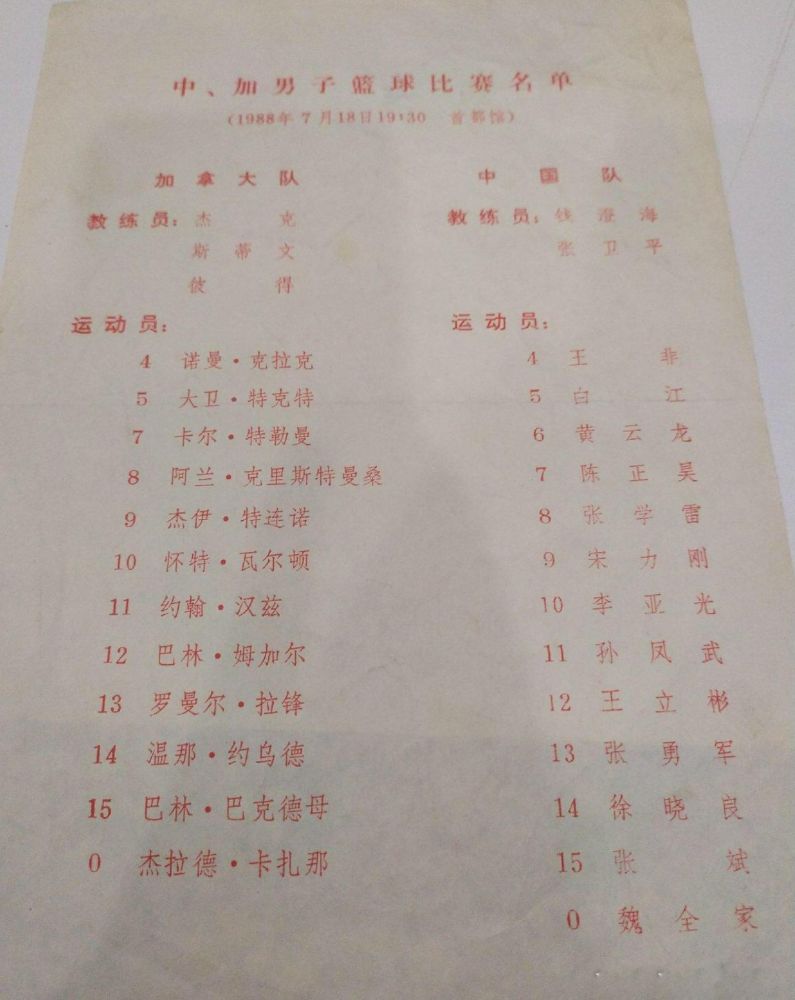 中、加男子篮球比赛名单
(1988年7月18日19:30 首都馆)
加拿大队
教练员：杰克
斯蒂文
彼得
运动员：
4 诺曼·克拉克
5 大卫·特克特
7 卡尔·特勒曼
8 阿兰·克里斯特曼桑
9 杰伊·特连诺
10 怀特·瓦尔顿
11 约翰·汉兹
12 巴林·姆加尔
13 罗曼尔·拉锋
14 温那·约乌德
15 巴林·巴克德母
0 杰拉德·卡扎那
中国队
教练员：钱澄海
张卫平
运动员：
4 王非
5 白江
6 黄云龙
7 陈正昊
8 张学雷
9 宋力刚
10 李亚光
11 孙凤武
12 王立彬
13 张勇军
14 徐晓良
15 张斌
0 魏全家